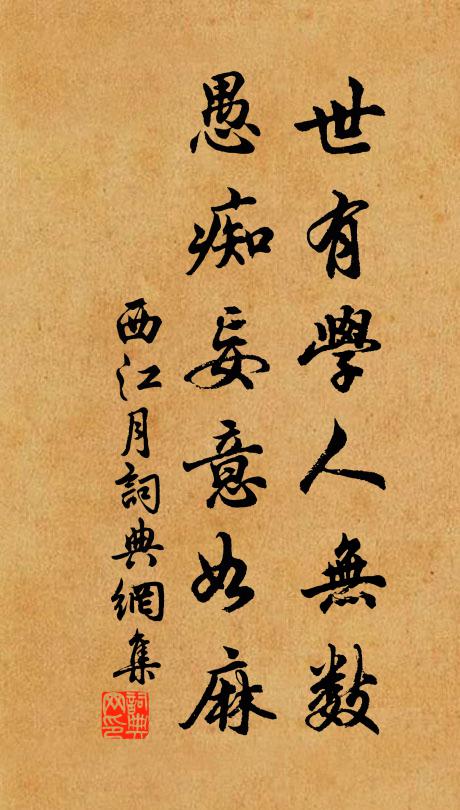 世有學人無數
愚痴妄意如麻
西江月詞典網集
詞典
网印